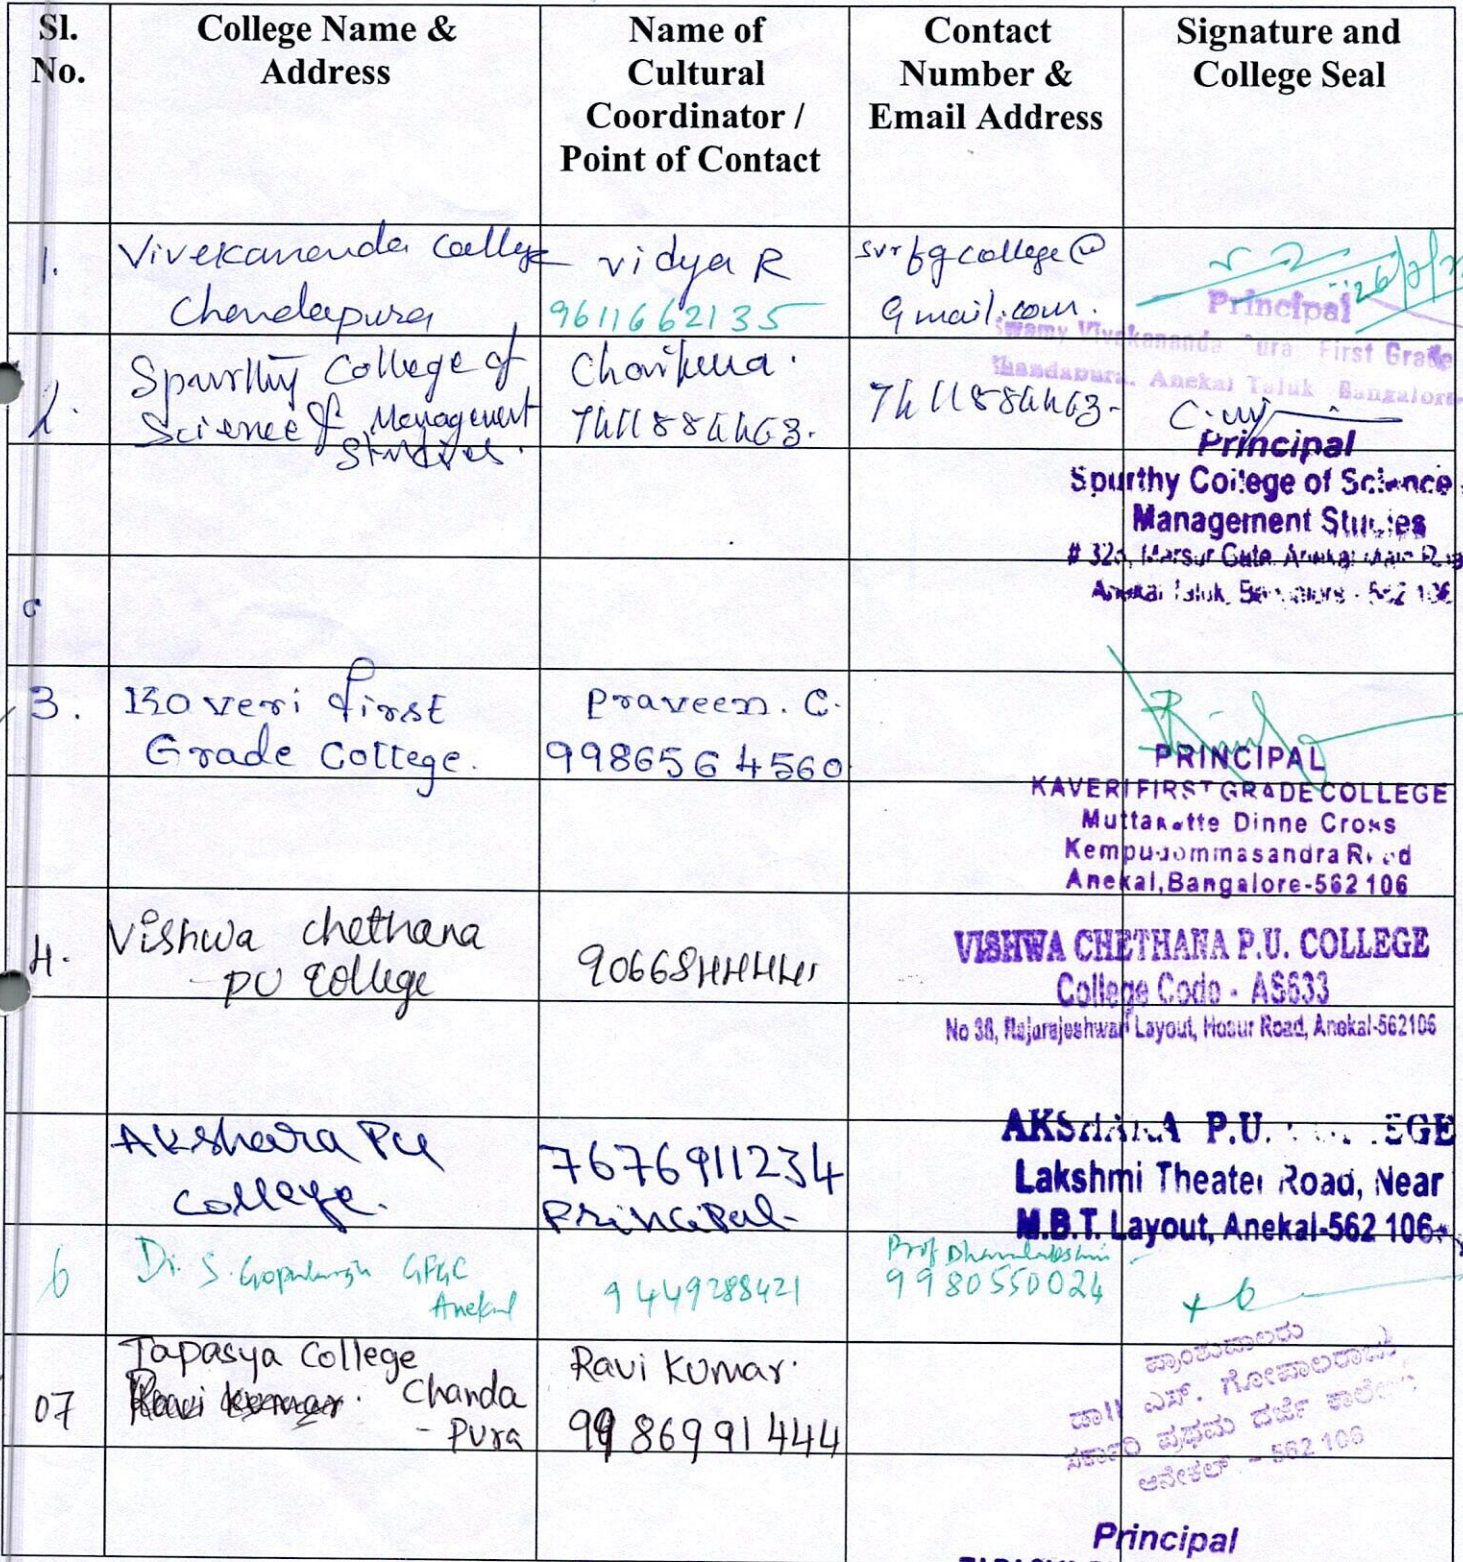 Sl. No.
College Name & Address
Name of Cultural Coordinator / Point of Contact
Contact Number & Email Address
Signature and College Seal
1.
Vivekananda College
Chandapura
Vidya R
9611662135
svrfgcollege@
gmail.com.
26/2/
Principal
Swamy Vivekananda Pura First Grade
Chandapura, Anekal Taluk, Bangalore
2.
Spurthy College of
Science & Management
Studies.
7411884463.
7411884463-
Principal
Spurthy College of Science
Management Studies
Marsur Gate, Anekal Main Road
Anekal Taluk, Bangalore - 562 106
3.
Kaveri first
Grade College.
Praveen. C.
9986564560
PRINCIPAL
KAVERI FIRST GRADE COLLEGE
Muttakatte Dinne Cross
Kempugommasandra Road
Anekal, Bangalore-562 106
4.
Vishwa chethana
PU College
VISHWA CHETHANA P.U. COLLEGE
College Code - AS633
No 38, Rajarajeshwari Layout, Hosur Road, Anekal-562106
Akshara PU
College.
7676911234
Principal-
AKSHARA P.U. COLLEGE
Lakshmi Theater Road, Near
M.B.T. Layout, Anekal-562 106
6
Dr. S. Gopalaraju GFGC
Anekal
9449288421
Prof Dhanalakshmi
9980550024
ಪ್ರಾಂಶುಪಾಲರು
ಡಾ|| ಎಸ್. ಗೋಪಾಲರಾಜು
ಸರ್ಕಾರಿ ಪ್ರಥಮ ದರ್ಜೆ ಕಾಲೇಜು
ಆನೇಕಲ್ - 562 106
07
Tapasya College
Ravi Kumar. Chanda
- Pura
Ravi Kumar.
9986991444
Principal